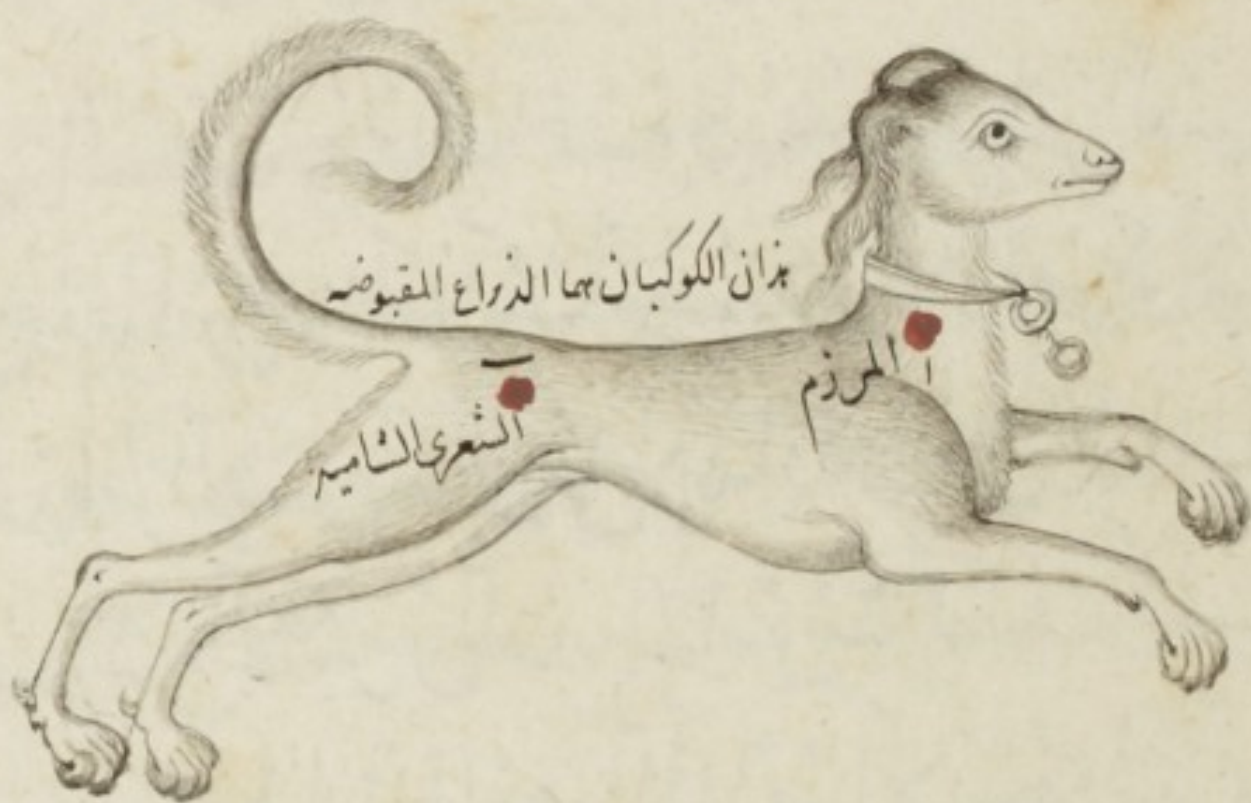 هذان الكوكبان هما الذراع المقبوضه
ا
المرزم
ب
الشعرى الشاميه